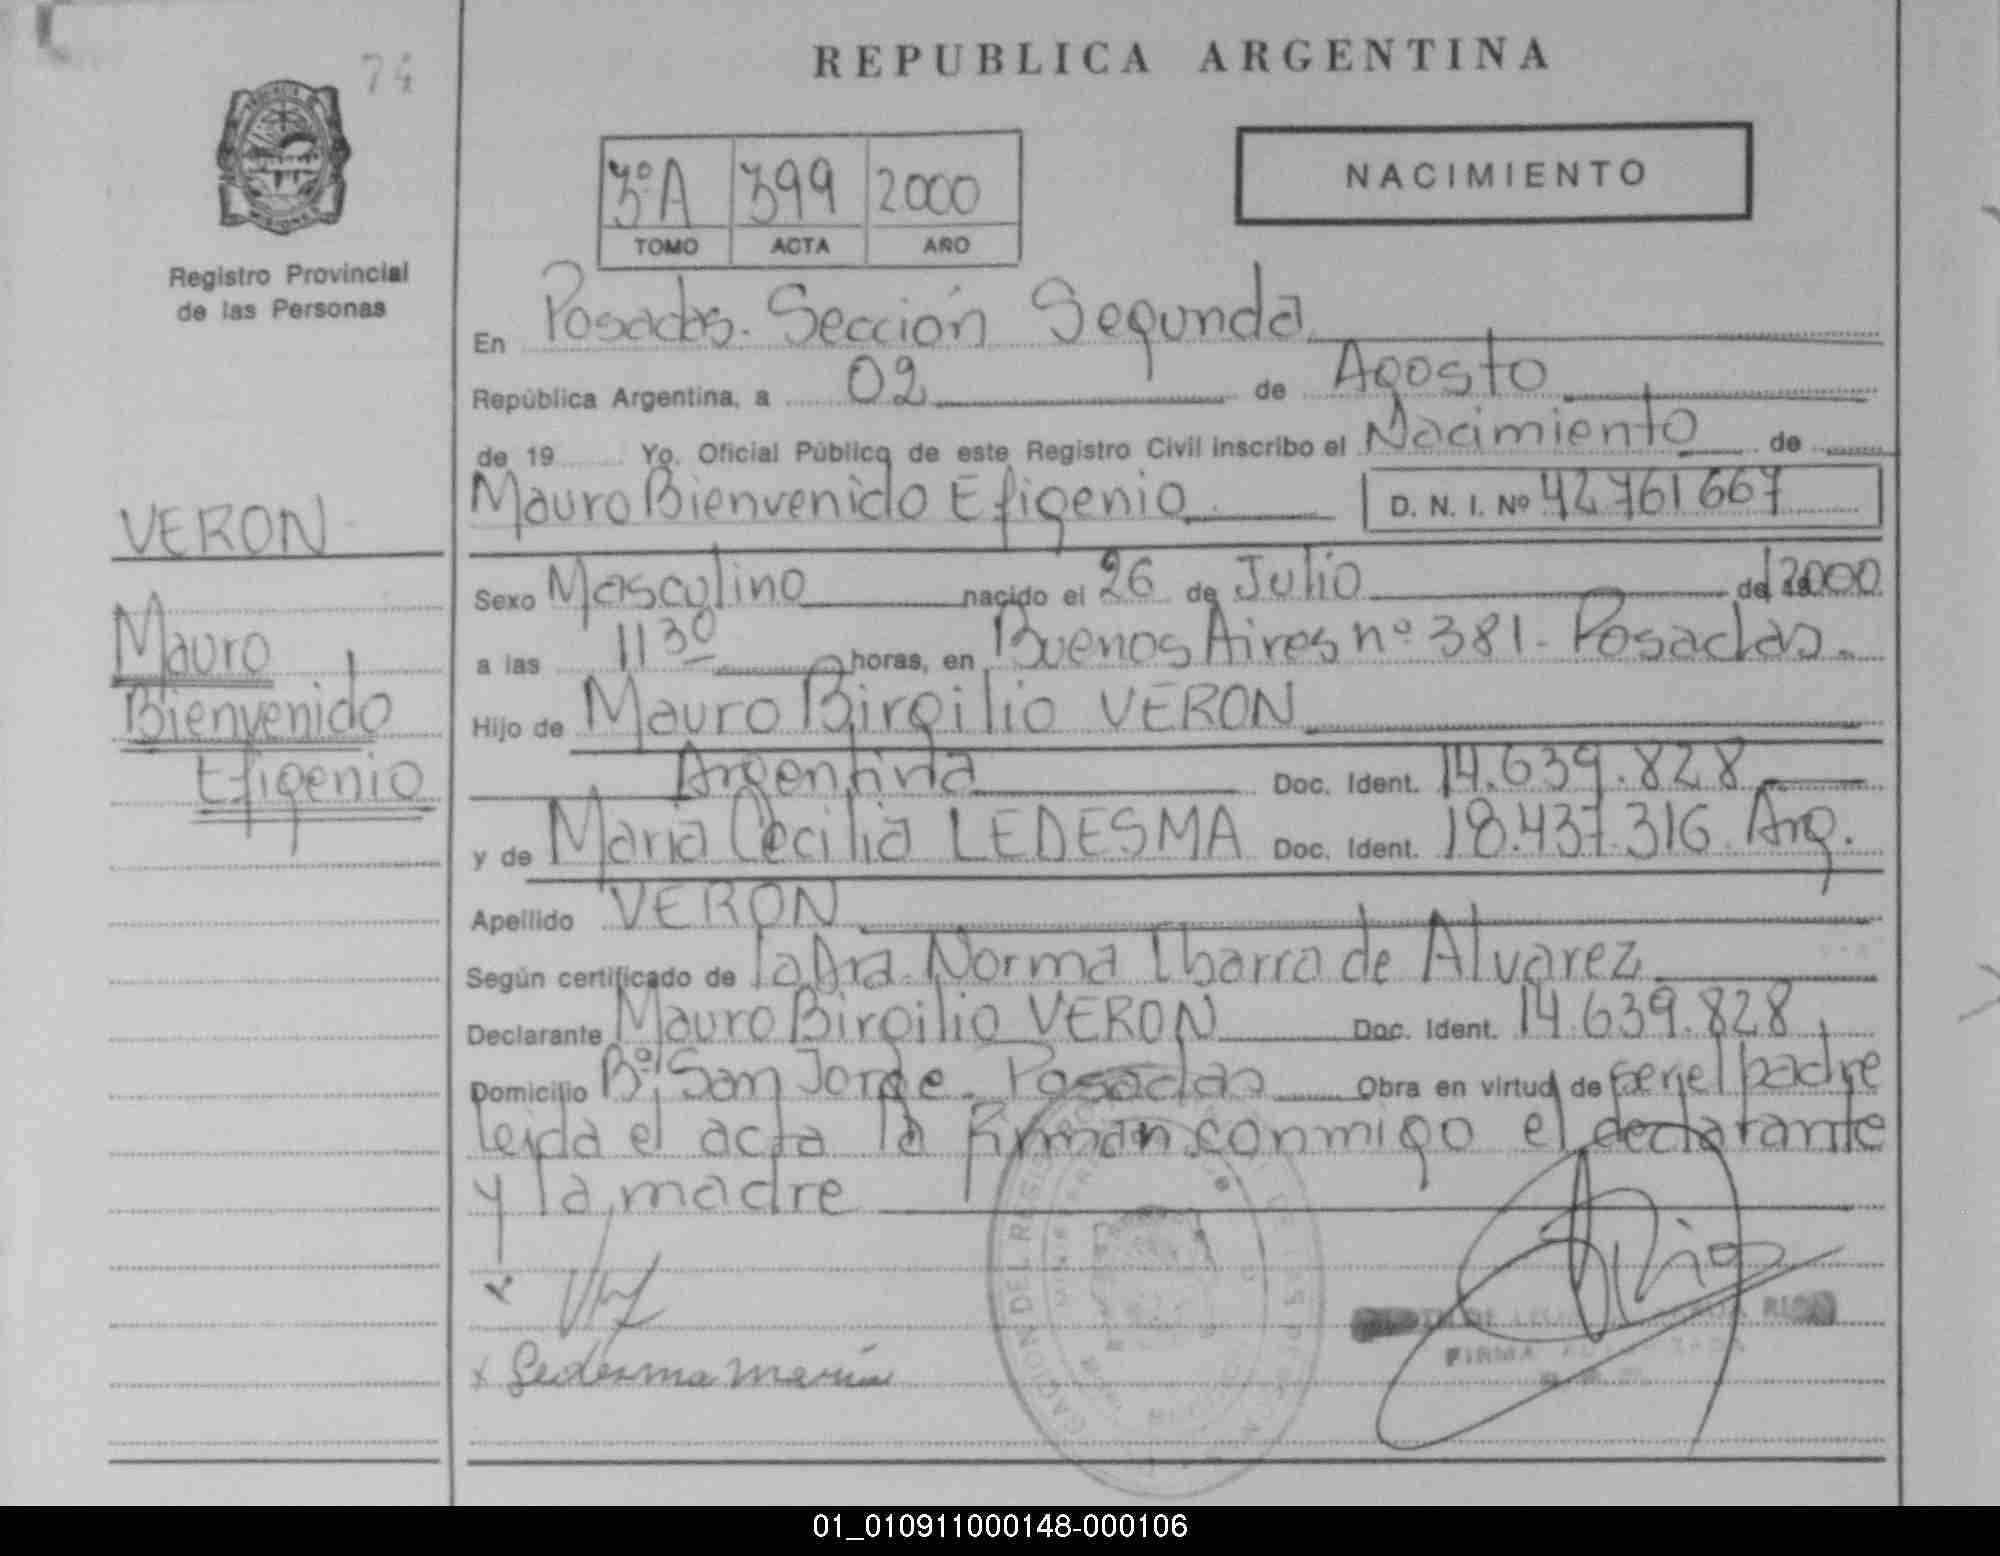 74
REPUBLICA ARGENTINA
3º A 399 2000
TOMO ACTA AÑO
NACIMIENTO
Registro Provincial
de las Personas
En Posadas. Sección Segunda
República Argentina, a 02 de Agosto
de 19 Yo, Oficial Público de este Registro Civil inscribo el Nacimiento de
Mauro Bienvenido Efigenio D. N. I. Nº 42.761.667
VERON
Mauro
Bienvenido
Efigenio
Sexo Masculino nacido el 26 de Julio de 2000
a las 11 30 horas, en Buenos Aires nº 381. Posadas.
Hijo de Mauro Birgilio VERON
Argentina Doc. Ident. 14.639.828
y de Maria Cecilia LEDESMA Doc. Ident. 18.437.316 Arg.
Apellido VERON
Según certificado de la Dra. Norma Ibarra de Alvarez
Declarante Mauro Birgilio VERON Doc. Ident. 14.639.828,
Domicilio Bº San Jorge. Posadas Obra en virtud de ser el padre
leida el acta la firman conmigo el declarante
y la madre
x Ledesma Maria
FIRMA
01_010911000148-000106